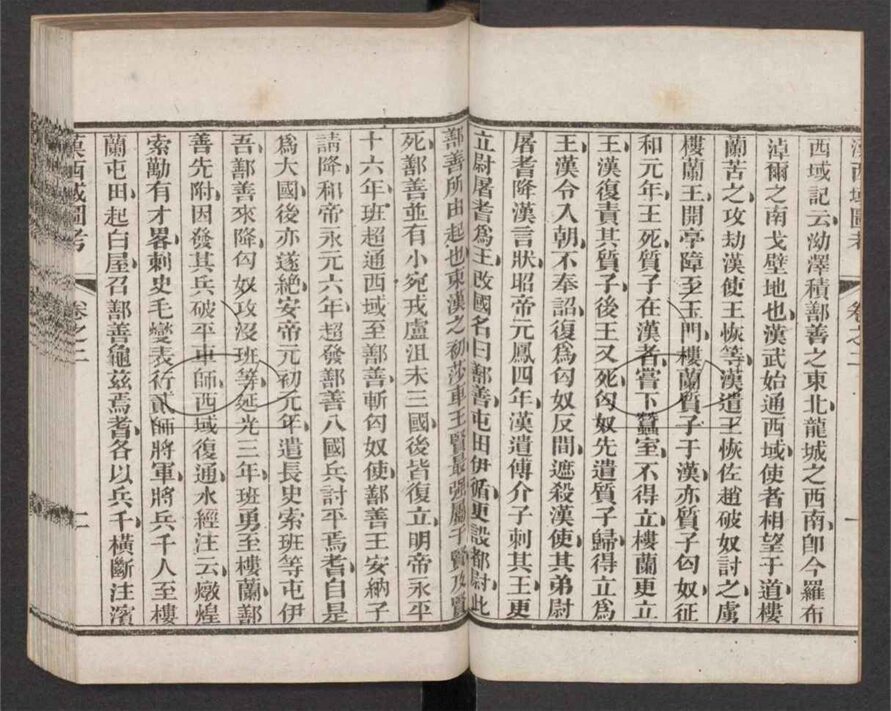 漢西域圖考 卷之二 一
西域記云泑澤積鄯善之東北龍城之西南卽今羅布
淖爾之南戈壁地也漢武始通西域使者相望于道樓
蘭苦之攻劫漢使王恢等漢遣王恢佐趙破奴討之虜
樓蘭王開亭障至玉門樓蘭質子于漢亦質子匈奴征
和元年王死質子在漢者嘗下蠶室不得立樓蘭更立
王漢復責其質子後王又死匈奴先遣質子歸得立爲
王漢令入朝不奉詔復爲匈奴反間遮殺漢使其弟尉
屠耆降漢言狀昭帝元鳳四年漢遣傅介子刺其王更
立尉屠耆爲王改國名曰鄯善屯田伊循更設都尉此
鄯善所由起也東漢之初莎車王賢最强屬于賢及賢
死鄯善並有小宛戎盧沮末三國後皆復立明帝永平
十六年班超通西域至鄯善斬匈奴使鄯善王安納子
請降和帝永元六年超發鄯善八國兵討平焉耆自是
爲大國後亦遂絶安帝元初元年遣長史索班等屯伊
吾鄯善來降匈奴攻沒班等延光三年班勇至樓蘭鄯
善先附因發其兵破平車師西域復通水經注云燉煌
索勱有才畧刺史毛變表行貳師將軍將兵千人至樓
蘭屯田起白屋召鄯善龜茲焉耆各以兵千橫斷注濱
漢西域圖考 卷之二 二